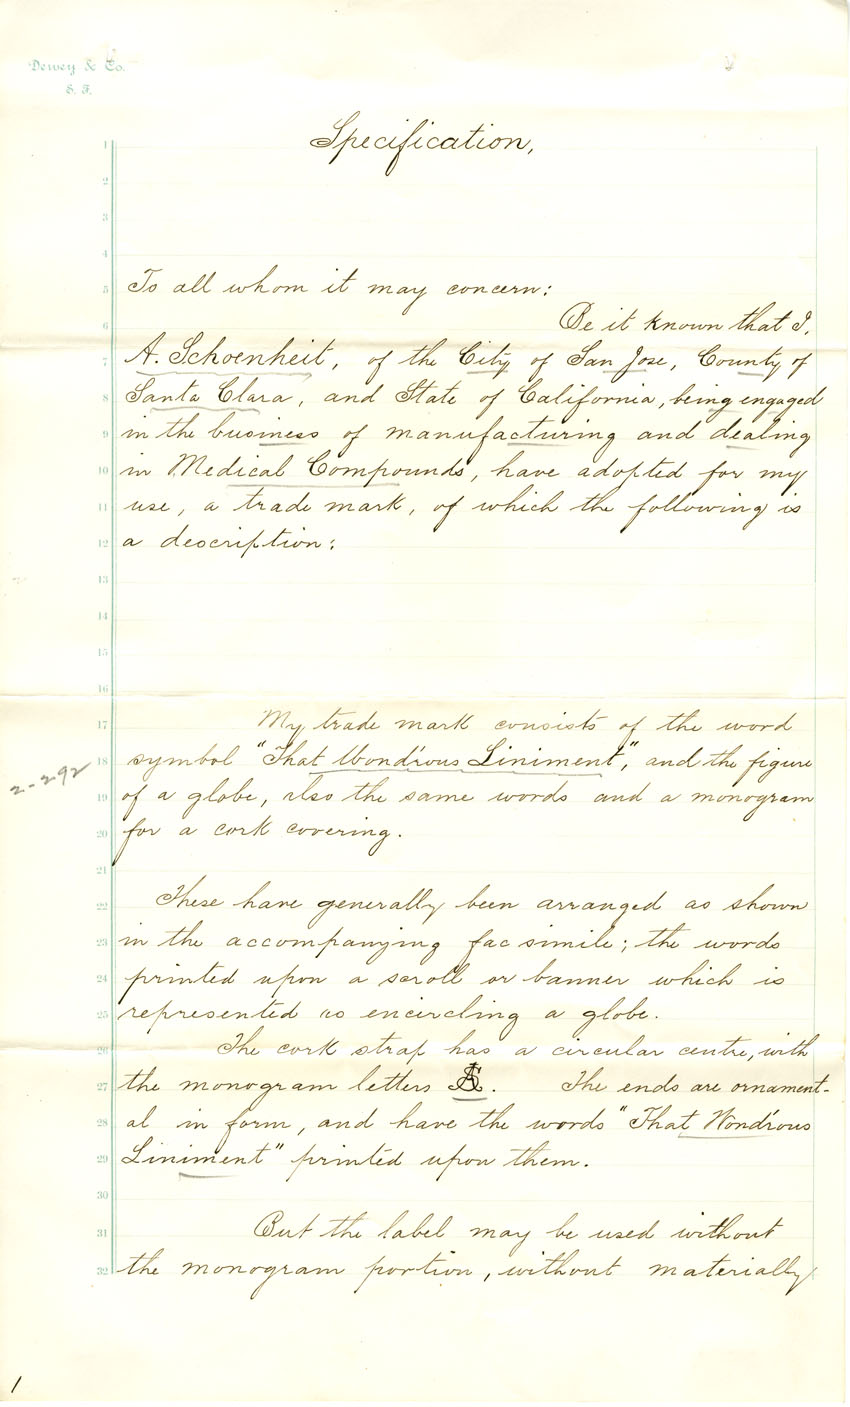 Dewey & Co.
S. F.
Specification,
1
2
3
4
5 To all whom it may concern:
6 Be it known that I,
7 A. Schoenheit, of the City of San Jose, County of
8 Santa Clara, and State of California, being engaged
9 in the business of manufacturing and dealing
10 in Medical Compounds, have adopted for my
11 use, a trade mark, of which the following is
12 a description:
13
14
15
16
17 My trade mark consists of the word
18 symbol "That Wond'rous Liniment", and the figure
2-292
19 of a globe, also the same words and a monogram
20 for a cork covering.
21
22 These have generally been arranged as shown
23 in the accompanying fac simile; the words
24 printed upon a scroll or banner which is
25 represented as encircling a globe.
26 The cork strap has a circular centre, with
27 the monogram letters AS. The ends are ornament-
28 al in form, and have the words "That Wond'rous
29 Liniment" printed upon them.
30
31 But the label may be used without
32 the monogram portion, without materially
1